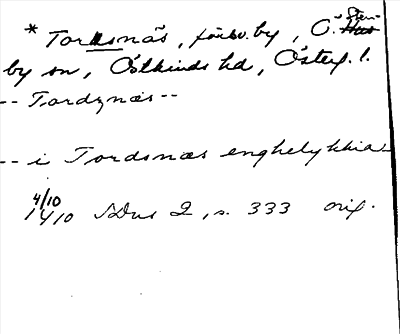 * Tordsnäs, försv. by, Ö. Sten-
by sn, Östkinds hd, Östergl.
-- Tordznæs --
-- i Tordsnæs enghelykkia
4/10
1410 SDns 2, s. 333 orig.